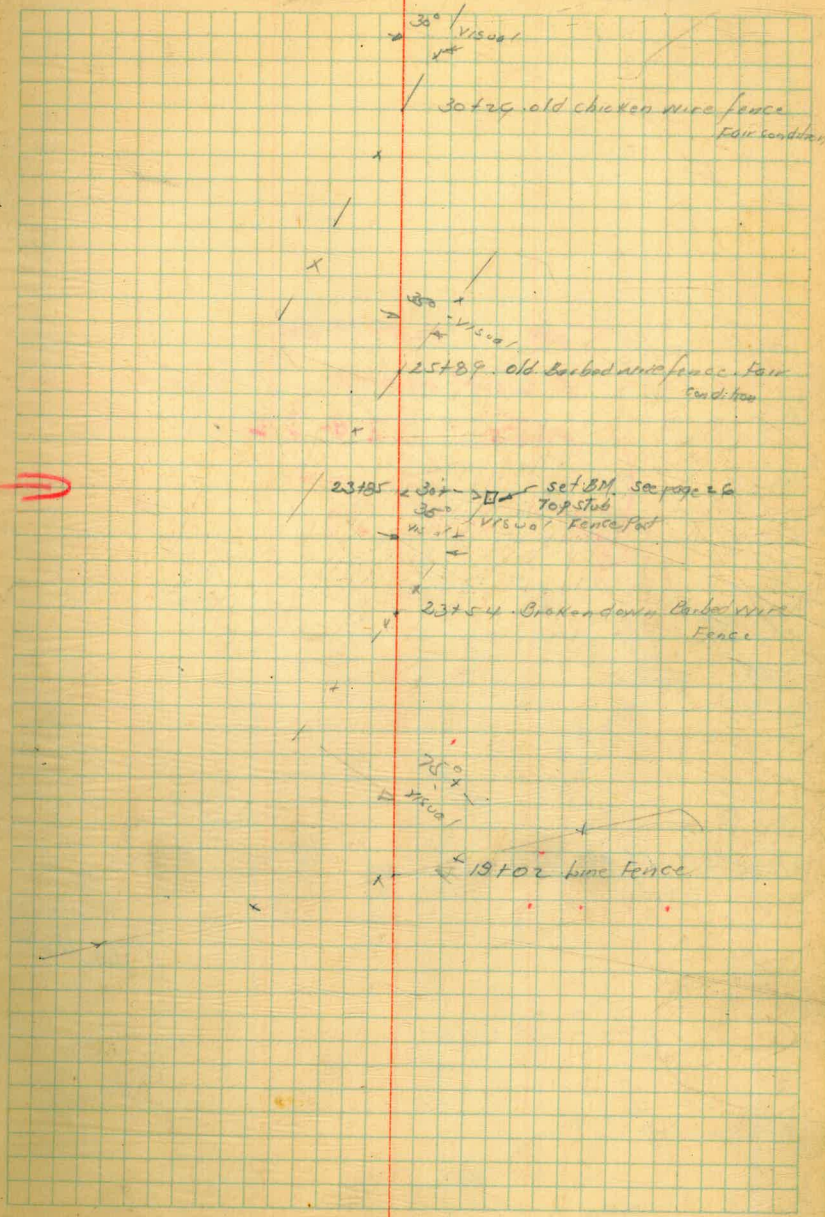 30° Visual
30+29 old chicken wire fence
Fair condition
Visual
25+89. old Barbed wire fence. Fair
condition
23+85 30± set BM. see page 26
Top stub
Visual Fence Post
Visual
23+54. Broken down Barbed wire
Fence
75°
Visual
19+02 Line Fence